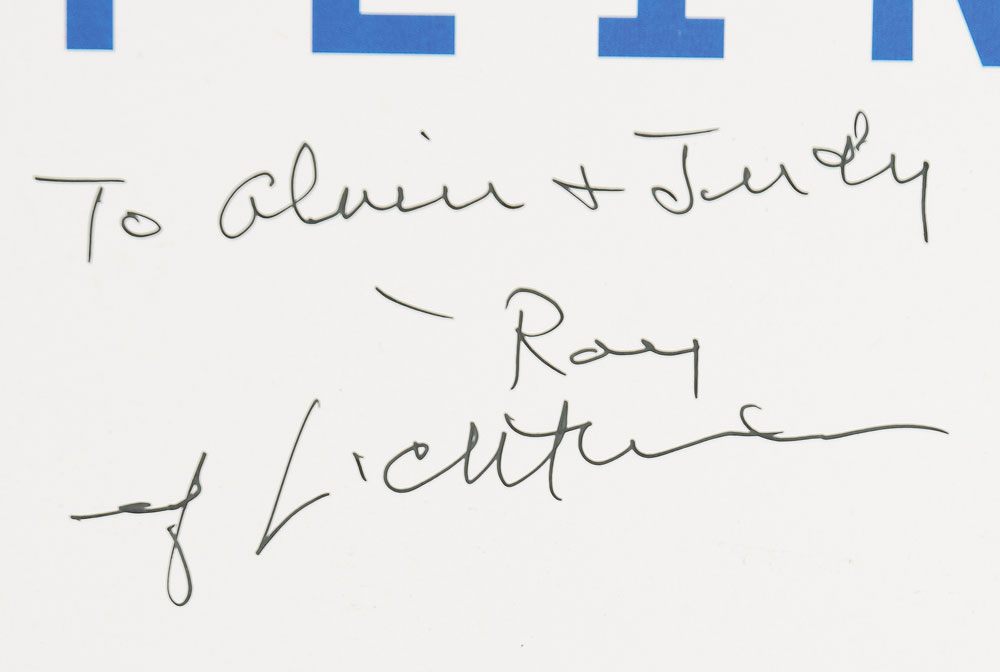 To Alvin + Judy
– Roy
rf Lichtenstein